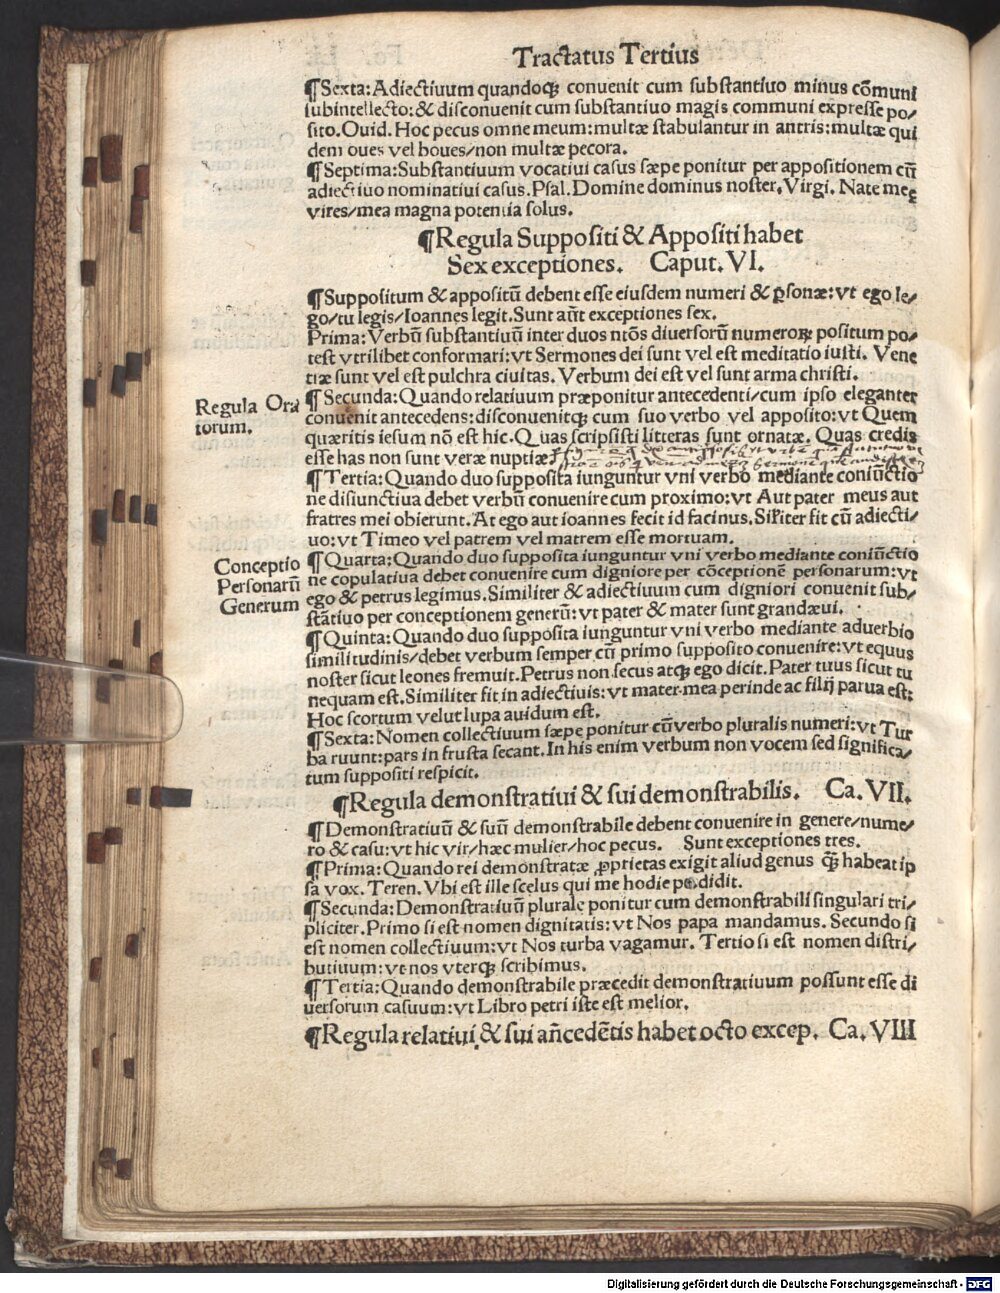 Tractatus Tertius
¶Sexta:Adiectiuum quandoqꝫ conuenit cum substantiuo minus cōmuni
subintellecto:& disconuenit cum substantiuo magis communi expresse po/
sito.Ouid. Hoc pecus omne meum:multæ stabulantur in antris:multæ qui
dem oues vel boues/non multæ pecora.
¶Septima:Substantiuum vocatiui casus sæpe ponitur per appositionem cū
adiectiuo nominatiui casus.Psal.Domine dominus noster.Virgi. Nate meę
vires/mea magna potentia solus.
¶Regula Suppositi & Appositi habet
Sex exceptiones. Caput.VI.
¶Suppositum & appositū debent esse eiusdem numeri & ꝑsonæ:vt ego le/
go/tu legis/Ioannes legit.Sunt aūt exceptiones sex.
Prima:Verbū substantiuū inter duos ntōs diuersorū numeroꝝ positum po/
test vtrilibet conformari:vt Sermones dei sunt vel est meditatio iusti. Vene
tiæ sunt vel est pulchra ciuitas. Verbum dei est vel sunt arma christi.
Regula Ora
torum.
¶Secunda:Quando relatiuum præponitur antecedenti/cum ipso eleganter
conuenit antecedens:disconuenitqꝫ cum suo verbo vel apposito:vt Quem
quæritis iesum nō est hic.Quas scripsisti litteras sunt ornatæ. Quas credis
esse has non sunt veræ nuptiæ:
¶Tertia:Quando duo supposita iunguntur vni verbo mediante coniūctio
ne disiunctiua debet verbū conuenire cum proximo:vt Aut pater meus aut
fratres mei obierunt.At ego aut ioannes fecit id facinus.Sil'iter fit cū adiecti/
uo:vt Timeo vel patrem vel matrem esse mortuam.
Conceptio
Personarū
Generum
¶Quarta:Quando duo supposita iunguntur vni verbo mediante coniūctio
ne copulatiua debet conuenire cum digniore per cōceptionē personarum:vt
ego & petrus legimus.Similiter & adiectiuum cum digniori conuenit sub/
stātiuo per conceptionem generū:vt pater & mater sunt grandæui.
¶Quinta:Quando duo supposita iunguntur vni verbo mediante aduerbio
similitudinis/debet verbum semper cū primo supposito conuenire:vt equus
noster sicut leones fremuit.Petrus non secus atqꝫ ego dicit.Pater tuus sicut tu
nequam est.Similiter fit in adiectiuis:vt mater mea perinde ac filij parua est:
Hoc scortum velut lupa auidum est.
¶Sexta:Nomen collectiuum sæpe ponitur cū verbo pluralis numeri:vt Tur
ba ruunt:pars in frusta secant.In his enim verbum non vocem sed significa/
tum suppositi respicit.
¶Regula demonstratiui & sui demonstrabilis. Ca.VII.
¶Demonstratiuū & suū demonstrabile debent conuenire in genere/nume/
ro & casu:vt hic vir/hæc mulier/hoc pecus. Sunt exceptiones tres.
¶Prima:Quando rei demonstratæ ꝓprietas exigit aliud genus qꝫ̄ habeat ip
sa vox. Teren. Vbi est ille scelus qui me hodie perdidit.
¶Secunda:Demonstratiuū plurale ponitur cum demonstrabili singulari tri/
pliciter.Primo si est nomen dignitatis:vt Nos papa mandamus. Secundo si
est nomen collectiuum:vt Nos turba vagamur. Tertio si est nomen distri/
butiuum:vt nos vterqꝫ scribimus.
¶Tertia:Quando demonstrabile præcedit demonstratiuum possunt esse di
uersorum casuum:vt Libro petri iste est melior.
¶Regula relatiui & sui añcedētis habet octo excep. Ca.VIII
Digitalisierung gefördert durch die Deutsche Forschungsgemeinschaft - DFG